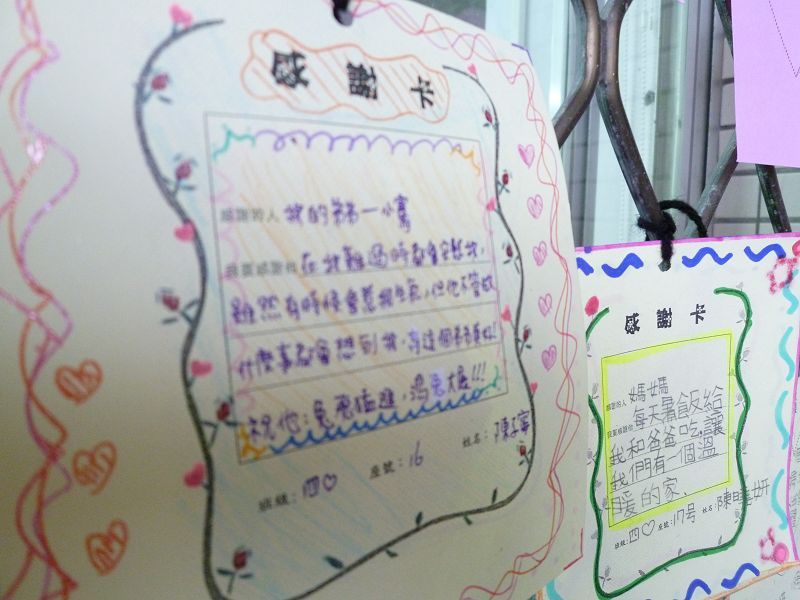 感謝卡
感謝的人 我的弟弟一小寯
我要感謝他 在我難過時都會安慰我，
雖然有時候會惹我生氣，但他不管做
什麼事都會想到我，有這個弟弟真好!
祝他：兔飛猛進，鴻兔大展!!!
班級：四♡ 座號：16 姓名：陳
感謝卡
感謝的人 媽媽
我要感謝他 每天煮飯給
我和爸爸吃，讓
我們有一個溫
暖的家．
班級：四♡ 座號：17号 姓名：陳妍